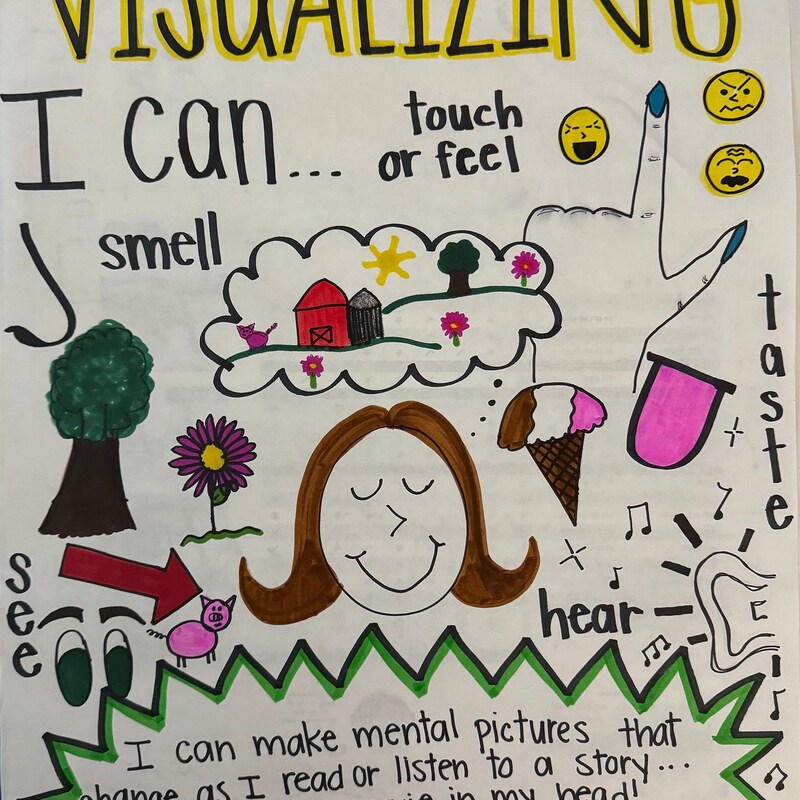 VISUALIZING
I can...
touch
or feel
smell
taste
see
hear
I can make mental pictures that
change as I read or listen to a story...
in my head!